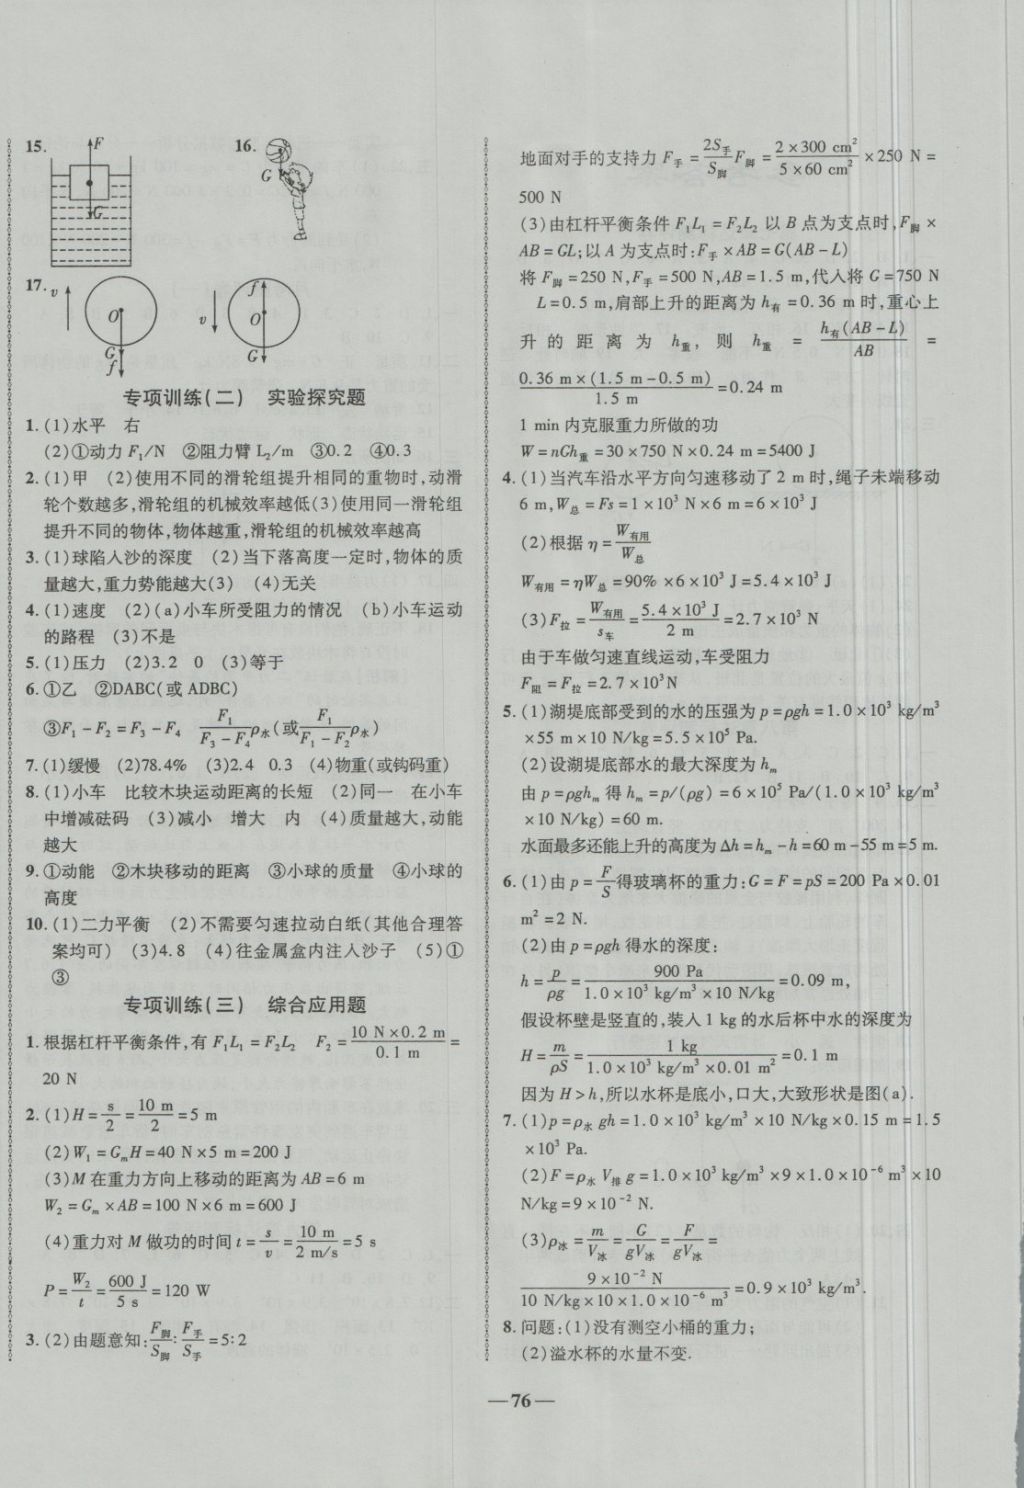 15.
F
G
16.
G
17.
v
O
G
f
v
f
O
G
专项训练(二) 实验探究题
1. (1)水平 右
(2)①动力 F₁/N ②阻力臂 L₂/m ③0.2 ④0.3
2. (1)甲 (2)使用不同的滑轮组提升相同的重物时,动滑
轮个数越多,滑轮组的机械效率越低(3)使用同一滑轮组
提升不同的物体,物体越重,滑轮组的机械效率越高
3. (1)球陷入沙的深度 (2)当下落高度一定时,物体的质
量越大,重力势能越大(3) (4)无关
4. (1)速度 (2)(a)小车所受阻力的情况 (b)小车运动
的路程 (3)不是
5. (1)压力 (2)3.2 0 (3)等于
6. ①乙 ②DABC(或 ADBC)
③F₁－F₂=F₃－F₄ F₁/(F₃－F₄)ρ水(或F₁/(F₁－F₂)ρ水)
7. (1)缓慢 (2)78.4% (3)2.4 0.3 (4)物重(或钩码重)
8. (1)小车 比较木块运动距离的长短 (2)同一 在小车
中增减砝码 (3)减小 增大 内 (4)质量越大,动能
越大
9. ①动能 ②木块移动的距离 ③小球的质量 ④小球的
高度
10. (1)二力平衡 (2)不需要匀速拉动白纸(其他合理答
案均可) (3)4.8 (4)往金属盒内注入沙子 (5)①
③
专项训练(三) 综合应用题
1. 根据杠杆平衡条件,有 F₁L₁=F₂L₂ F₂=(10 N×0.2 m)/(0.1 m)=
20 N
2. (1)H=s/2=10 m/2=5 m
(2)W₁=GₘH=40 N×5 m=200 J
(3)M 在重力方向上移动的距离为 AB=6 m
W₂=Gₘ×AB=100 N×6 m=600 J
(4)重力对 M 做功的时间 t=s/v=10 m/(2 m/s)=5 s
P=W₂/t=600 J/5 s=120 W
3. (2)由题意知:F脚/S脚:F手/S手=5:2
地面对手的支持力 F手=2S手/S脚 F脚=(2×300 cm²)/(5×60 cm²)×250 N=
500 N
(3)由杠杆平衡条件 F₁L₁=F₂L₂ 以 B 点为支点时,F脚×
AB=GL;以 A 为支点时:F手×AB=G(AB－L)
将 F脚=250 N,F手=500 N,AB=1.5 m,代入将 G=750 N
L=0.5 m,肩部上升的距离为 h有=0.36 m 时,重心上
升的距离为 h重,则 h重=h有(AB－L)/AB=
0.36 m×(1.5 m－0.5 m)/1.5 m=0.24 m
1 min 内克服重力所做的功
W=nGh重=30×750 N×0.24 m=5400 J
4. (1)当汽车沿水平方向匀速移动了 2 m 时,绳子末端移动
6 m,W总=Fs=1×10³ N×6 m=6×10³ J
(2)根据 η=W有用/W总
W有用=ηW总=90%×6×10³ J=5.4×10³ J
(3)F拉=W有用/s车=5.4×10³ J/2 m=2.7×10³ N
由于车做匀速直线运动,车受阻力
F阻=F拉=2.7×10³N
5. (1)湖堤底部受到的水的压强为 p=ρgh=1.0×10³ kg/m³
×55 m×10 N/kg=5.5×10⁵ Pa.
(2)设湖堤底部水的最大深度为 hₘ
由 p=ρghₘ 得 hₘ=p/(ρg)=6×10⁵ Pa/(1.0×10³ kg/m³
×10 N/kg)=60 m.
水面最多还能上升的高度为 Δh=hₘ－h=60 m－55 m=5 m.
6. (1)由 p=F/S 得玻璃杯的重力:G=F=pS=200 Pa×0.01
m²=2 N.
(2)由 p=ρgh 得水的深度:
h=p/ρg=900 Pa/(1.0×10³ kg/m³×10 N/kg)=0.09 m,
假设杯壁是竖直的,装入 1 kg 的水后杯中水的深度为
H=m/ρS=1 kg/(1.0×10³ kg/m³×0.01 m²)=0.1 m
因为 H>h,所以水杯是底小,口大,大致形状是图(a).
7. (1)p=ρ水 gh=1.0×10³ kg/m³×10 N/kg×0.15 m=1.5
×10³ Pa.
(2)F=ρ水 V排 g=1.0×10³ kg/m³×9×1.0×10⁻⁶ m³×10
N/kg=9×10⁻² N.
(3)ρ冰=m/V冰=G/gV冰=F/gV冰=
9×10⁻² N/(10 N/kg×10×1.0×10⁻⁶ m³)=0.9×10³ kg/m³.
8. 问题:(1)没有测空小桶的重力;
(2)溢水杯的水量不变.
—76—